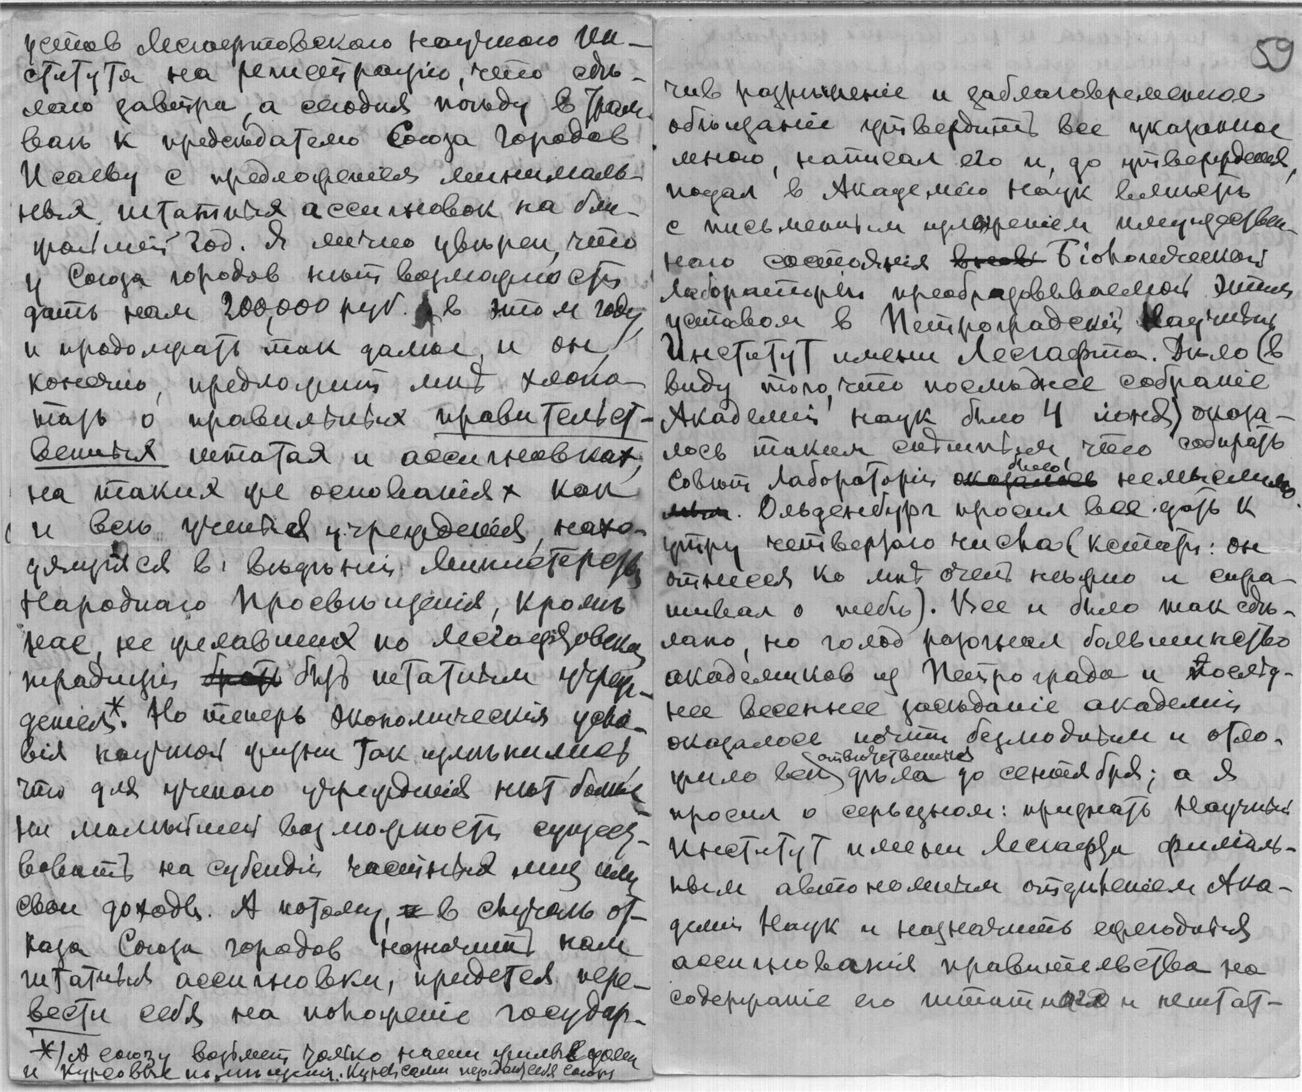 устав Лесгафтовского научного Ин-
ститута на регистрацію, что сдѣ-
лаю завтра, а сегодня поѣду в Трам-
ваѣ к предсѣдателю Союза городов
Исаеву с предложенiем минималь-
ных штатных ассигновок на бли-
жайшій год. Я лично увѣрен, что
у Союза городов нѣт возможности
дать нам 200,000 руб. в этом году
и продолжать так далѣе, и он,
конечно, предложит мнѣ хлопо-
тать о правильных правительст-
венных штатах и ассигновках,
на таких же основаніях как
и всѣ ученыя учрежденія, нахо-
дящіяся в вѣдѣніи Министерства
Народнаго Просвѣщенія, кромѣ
нас, не желавших по Лесгафтовской
традиціи быть штатным учреж-
деніем*. Но теперь экономическія усло-
вія научной жизни так измѣнились,
что для ученаго учрежденія нѣт болѣе
ни малѣйшей возможности сущест-
вовать на субсидіи частных лиц или
свои доходы. А потому, в случаѣ от-
каза Союза городов назначить нам
штатныя ассигновки, придется пере-
вести себя на положеніе государ-
*) А союзу возьмет только наши
и курсовыя помѣщенія. Курсы сами передают себя союзу
59
чив разрѣшеніе и заблаговременное
обѣщаніе утвердить все указанное
мною, написал его и, до утвержденія,
подал в Академію Наук вмѣстѣ
с письменным изложеніем имуществен-
наго состоянія Біологической
Лабораторіи преобразовываемой этим
уставом в Петроградскій Научный
Институт имени Лесгафта. Дѣло (в
виду того, что послѣднее собраніе
Академіи наук было 4 іюня) оказа-
лось таким спѣшным, что собирать
Совѣт Лабораторіи было немыслимо
. Ольденбург просил все дать к
утру четвертаго числа (кстати: он
отнесся ко мнѣ очень нѣжно и спра-
шивал о тебѣ). Все и было так сдѣ-
лано, но голод разогнал большинство
академиков из Петрограда и послѣд-
нее весеннее засѣданіе академіи
оказалось почти безлюдным и отло-
жило всѣ отвѣтственныя дѣла до сентября; а я
просил о серьезном: признать Научный
Институт имени Лесгафта филіаль-
ным автономным отдѣленіем Ака-
деміи Наук и назначить ежегодныя
ассигнованія правительства на
содержаніе его штатнаго и нештат-